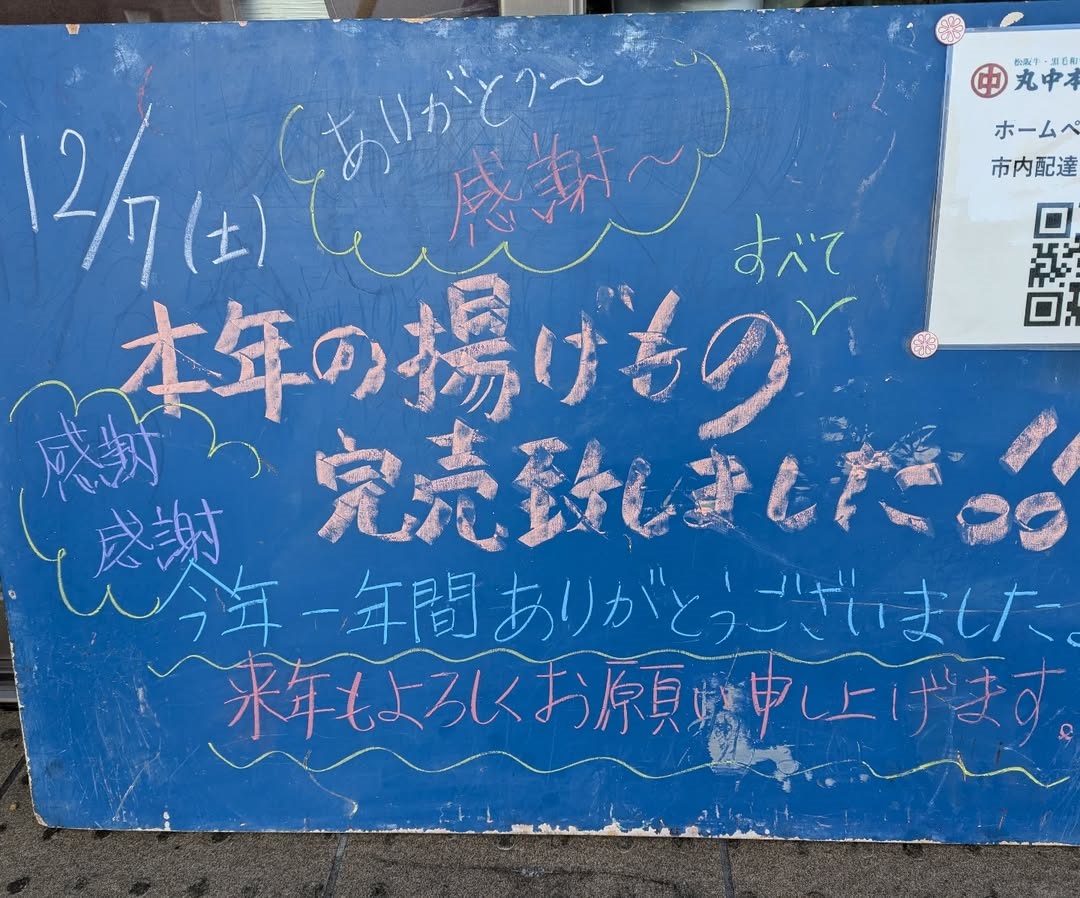 12/7(土)
ありがとう〜
感謝〜
すべて
本年の揚げもの
完売致しました。。!!
感謝
感謝
今年一年間ありがとうございました。
来年もよろしくお願い申し上げます。
松阪牛・黒毛和
中 丸中本
ホームペ
市内配達